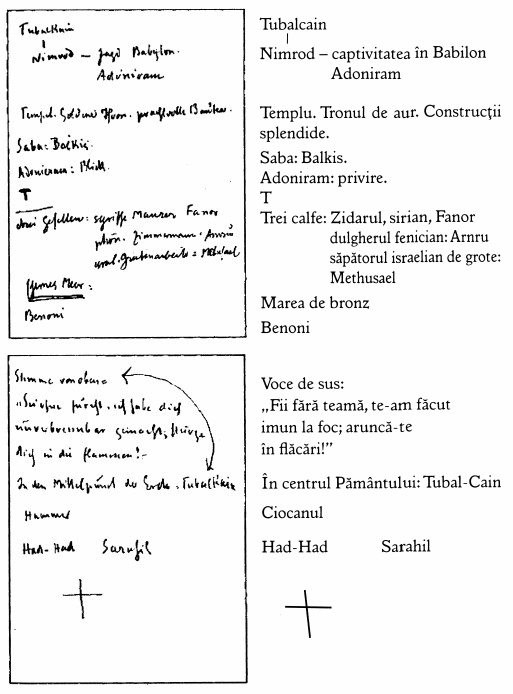 Tubalkain
Nimrod – Babylon.
Adoniram
Tempel. Goldener Thron. prachtvolle Bauten.
Saba: Balkis.
Adoniram: Blick.
T
drei Gesellen: Maurer Fanor
phön. Zimmermann:
Methusael
Ehernes Meer:
Benoni
Tubalcain
Nimrod – captivitatea în Babilon
Adoniram
Templu. Tronul de aur. Construcții
splendide.
Saba: Balkis.
Adoniram: privire.
T
Trei calfe: Zidarul, sirian, Fanor
dulgherul fenician: Arnru
săpătorul israelian de grote:
Methusael
Marea de bronz
Benoni
Stimme von oben =
„Sei ohne furcht, ich habe dich
unverbrennbar gemacht; stürze
dich in die flammen! –
In den Mittelpunct der Erde. Tubalkain
Hammer
Had-Had Sarahil
Voce de sus:
„Fii fără teamă, te-am făcut
imun la foc; aruncă-te
în flăcări!”
În centrul Pământului: Tubal-Cain
Ciocanul
Had-Had Sarahil